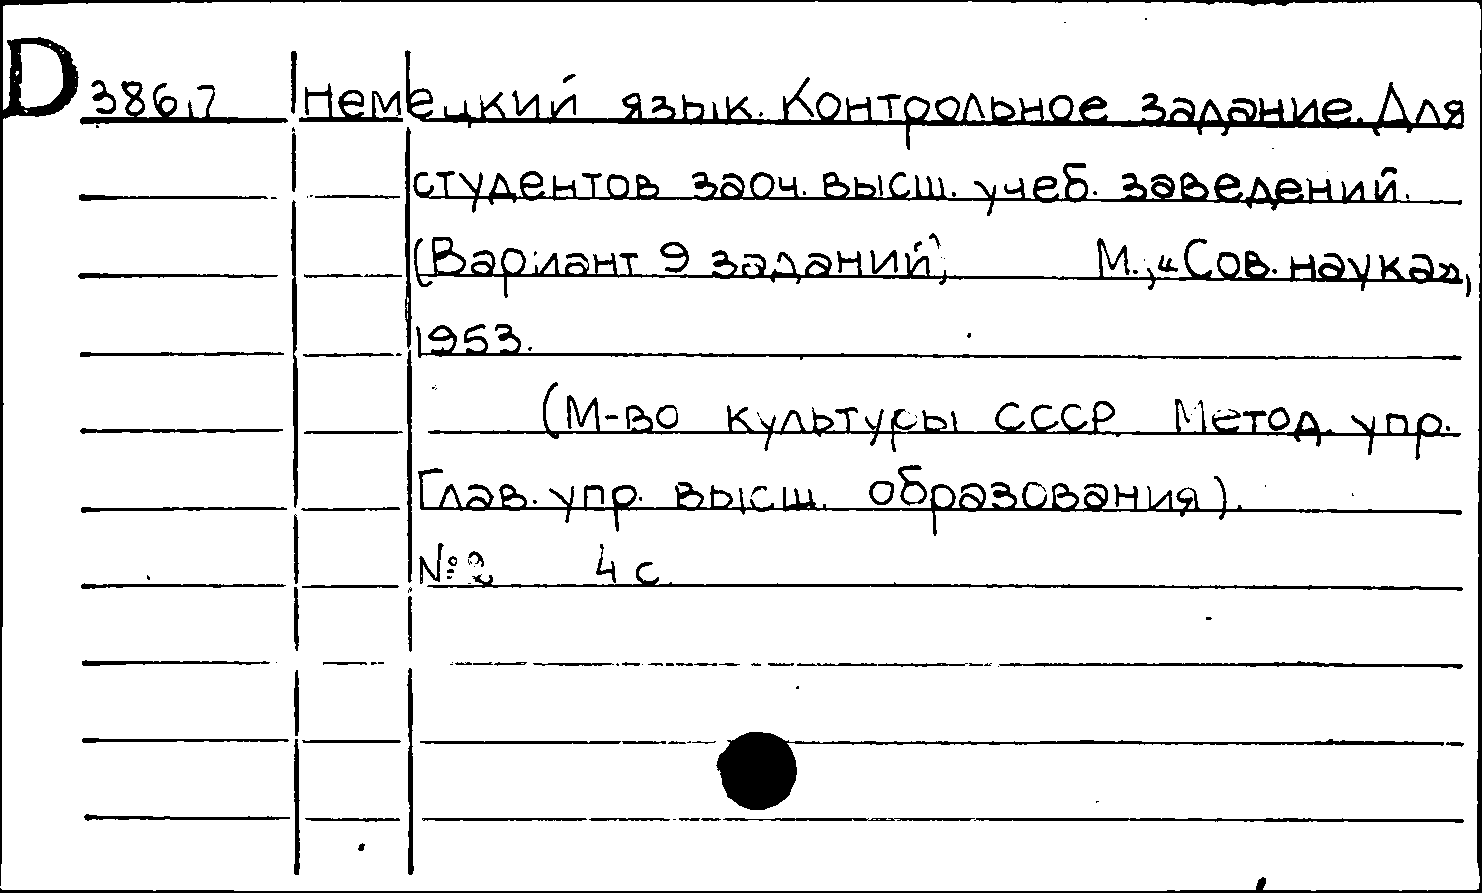 D 386,7 Немецкий язык. Контрольное задание. Для
студентов заоч. высш. учеб. заведений.
(Вариант 9 заданий) М., «Сов. наука»,
1953.
(М-во культуры СССР. Метод. упр.
Глав. упр. высш. образования).
№ 2 4 с